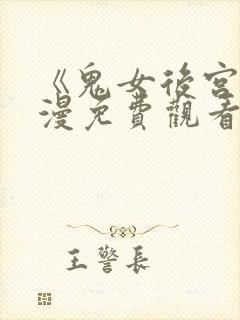 《鬼女後宮
漫免費觀看
王警長